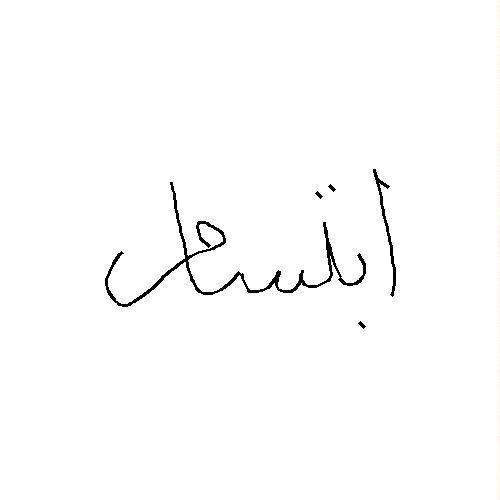 ابتسام